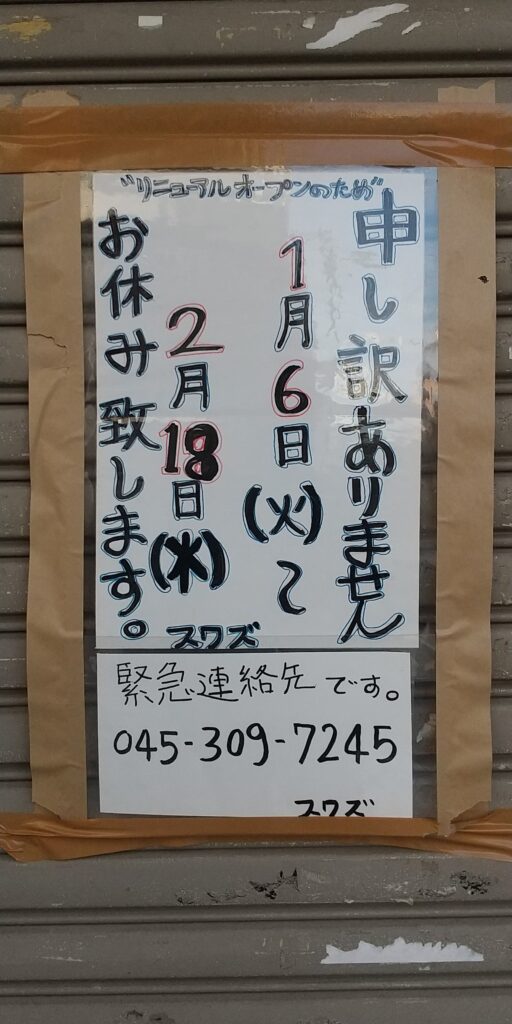 "リニューアルオープンのため"
申し訳ありません
1月6日(火)〜
2月18日(水)
お休み致します。
スワズ
緊急連絡先です。
045-309-7245
スワズ